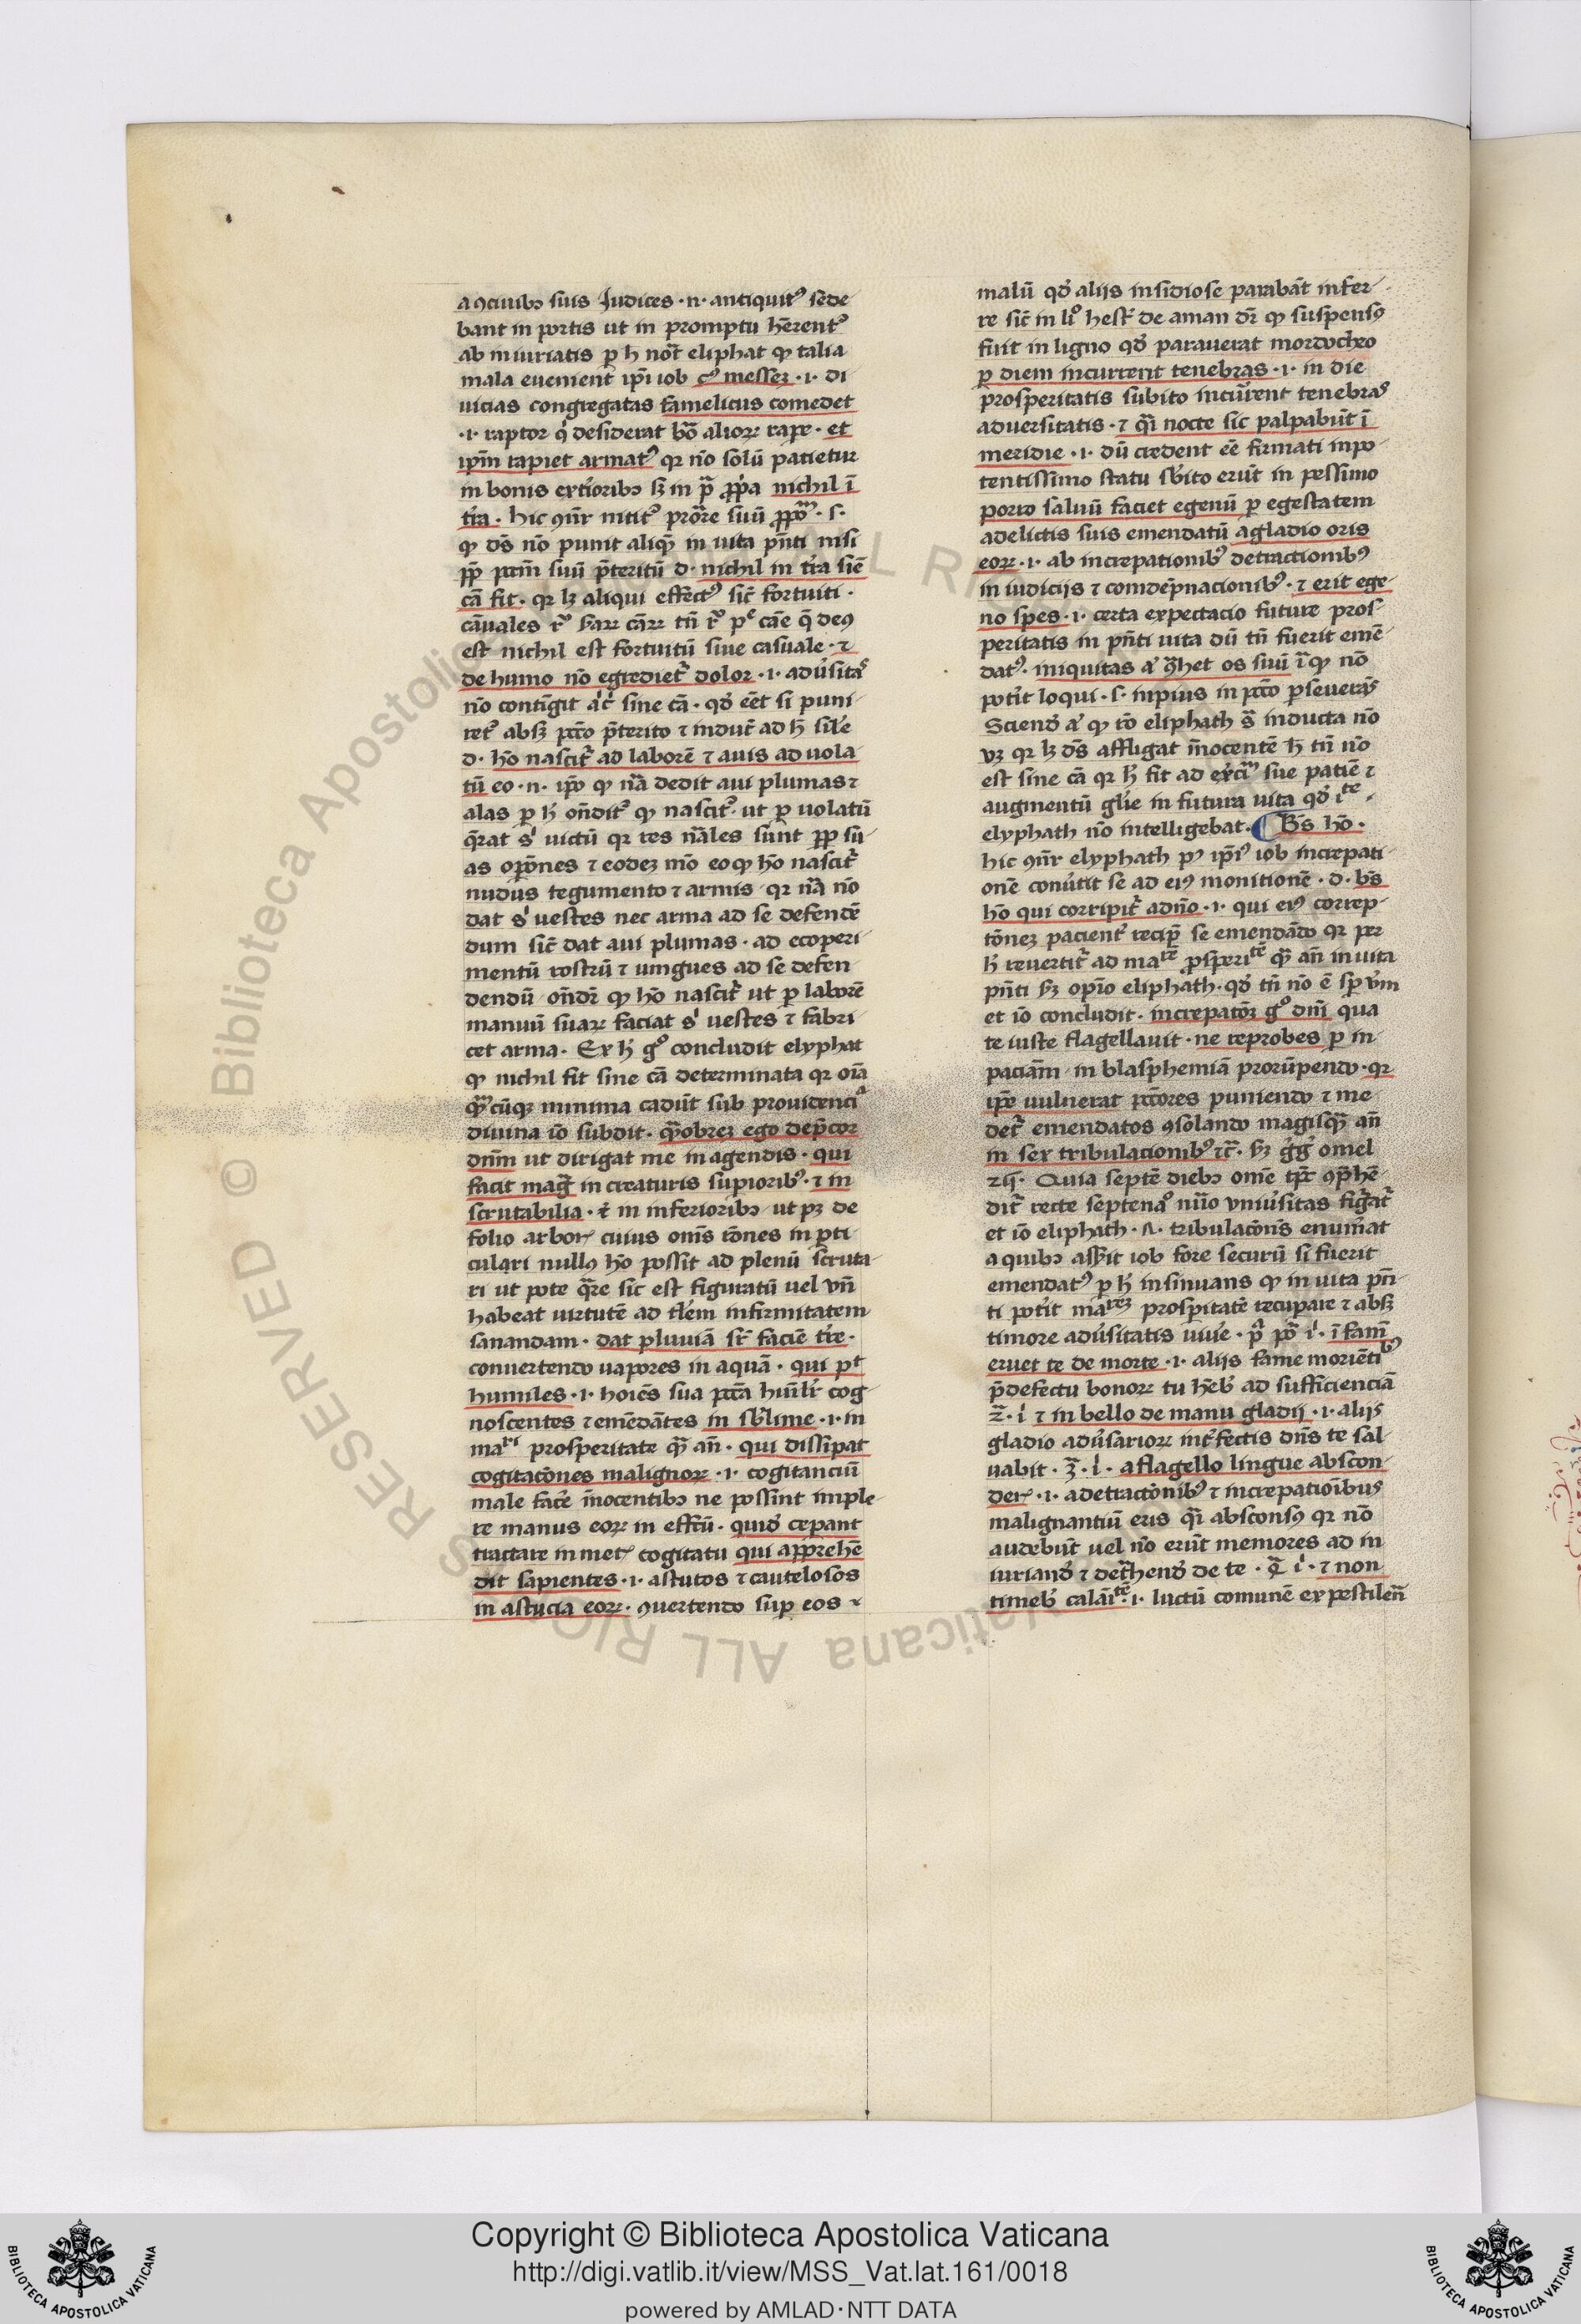 a ꝯciuibꝫ suis Judices ·n· antiquitꝰ sede
bant in portis ut in promptu h̄erentꝰ
ab iniuriatis ꝑ h not̄ eliphat ꝙ talia
mala euenient̄ ip̄i iob cꝰ messeꝫ ·i· di
uicias congregatas famelicus comedet
·i· raptor q̇ desiderat bōa alioꝝ raꝑe · et
ip̄m rapiet armatꝰ qꝛ nō solū patietur
in bonis exterioribꝫ sꝫ in p̄a ꝓp̄a nichil ī
t̄ra · hic ꝯn̄r nititꝰ pro᷑re suū ꝓpōm · s·
ꝙ dn̄s nō punit aliq̄ in uita p̄nti nisi
ꝓp̄ pc̄m suū p̄teritū d· nichil in t̄ra sine
cā fit · qꝛ lꝫ aliqui effectꝰ sic̄ fortuiti ·
cāuales rō sꝛaꝝ cāꝝ tn̄ rō p̄e cāe q̄ deꝰ
est nichil est fortuitū siue casuale · ⁊
de humo nō egrediet᷑ dolor ·i· adūsitas
nō contingit alic̓ sine cā · qd̓ eēt si puni
retꝰ absqꝫ pcc̄o p̄terito ⁊ induc̄ ad h̄ sil̓e
d· hō nascit᷑ ad laborē ⁊ auis ad uola
tū eo ·n· ip̄o ꝙ nā dedit aui plumas ⁊
alas ꝑ h̄ on̄ditꝰ ꝙ nascitꝰ · ut ꝑ uolatū
q̄rat s̓ uictū qꝛ res nāles sunt ꝓp̄ su
as oꝑōnes ⁊ eodeꝫ mō eo ꝙ hō nascit᷑
nudus tegumento ⁊ armis qꝛ nā nō
dat s̓ uestes nec arma ad se defendē
dum sic̄ dat aui plumas · ad ecoperi
mentū rostrū ⁊ ungues ad se defen
dendū on̄dr̄ ꝙ hō nascit᷑ ut ꝑ laborē
manuū suaꝝ faciat s̓ uestes ⁊ fabri
cet arma · Ex h̄ gͦ concludit elyphat
ꝙ nichil fit sine cā determinata qꝛ oīa
q̄ntūcūqꝫ minima cadūt sub prouidencia
diuina iō subdit · q̄mobreꝫ ego dep̄cor
dn̄m ut dirigat me in agendis · qui
facit maḡ in creaturis suꝑioribꝰ · ⁊ in
scrutabilia · ⁊ in inferioribꝫ ut pꝫ de
folio arboꝝ cuius om̄s rōnes in ꝑti
culari nullꝰ hō possit ad plenū scruta
ri ut pote q̄re sic est figuratū uel un̄
habeat uirtutē ad tl̓em infirmitatem
sanandam · dat pluuiā sr̄ faciē t̄re ·
conuertendo uapores in aquā · qui pt
humiles ·i· hoīes sua pcc̄a hūilr̄ cog
noscentes ⁊ emēdātes in sb̓lime ·i· in
maᵒʳⁱ prosperitate q̄ an̄ · qui dissipat
cogitac̄ones malignoꝝ ·i· cogitanciū
male fac̄e īnocentibꝫ ne possint imple
re manus eoꝝ in effc̄ū · quid̓ ceꝑant
tractare in metꝭ cogitatu qui app̄rehē
dit sapientes ·i· astutos ⁊ cautelosos
in astucia eoꝝ · ꝯuertendo suꝑ eos
malū qd̓ alijs insidiose parabāt infer
re sic̄ in li° hest̄ de aman dr̄ ꝙ suspensꝰ
fuit in ligno qd̓ parauerat mordocheo
ꝑ diem incurrerūt tenebras ·i· in die
prosperitatis subito incūrent tenebras
aduersitatis · ⁊ q̄i nocte sic palpabūt ī
meridie ·i· dū credent eē firmati in po
tentissimo statu sb̓ito erūt in pessimo
porro saluū faciet egenū ꝑ egestatem
a delictis suis emendatū a gladio oris
eoꝝ ·i· ab increpationibꝰ detractionibꝰ
in iudicijs ⁊ comdēpnacionibꝰ · ⁊ erit ege
no spes ·i· certa expectacio future pros
peritatis in pn̄ti uita dū tn̄ fuerit emē
datꝰ · iniquitas aͥ ꝯ̄het os suū īqꝫ nō
potit loqui · s· inpius in pcc̄o ꝑseuerās
Sciend̓ aͥ ꝙ rō eliphath s̄ inducta nō
uꝫ qꝛ lꝫ dn̄s affligat īnocentē h̄ tn̄ nō
est sine cā qꝛ h̄ fit ad ex̓cm̄ sue patiē ⁊
augmentū gl̓ie in futura uita qd̓ īte
elyphath nō intelligebat · B̄s hō ·
hic ꝯn̄r elyphath pꝰ ip̄iꝰ iob increpati
onē conūtit se ad eiꝰ monitionē · d· bs̄
hō qui corripit᷑ a dn̄o ·i· qui eiꝰ correp
tōneꝫ pacient̓ recip̄ se emendādo qꝛ per
h̄ reuertit᷑ ad maʳᵉ prosperitē q̄ an̄ in uita
pn̄ti sꝫ opīo eliphath · qd̓ tn̄ nō ē sp̄ u̓m
et iō concludit · increpatōꝫ gͦ dn̄i qua
te iuste flagellauit · ne reprobes ꝑ in
paciām in blasphemiā prorūpendo · qꝛ
ip̄e uulnerat pcc̄ores puniendo ⁊ me
det᷑ emendatos ꝯsolando magisq̄ an̄
in sex tribulacionibꝰ ⁊c̄ · sꝫ g̓g̓ omel
⁊ij · Quia septē diebꝫ omē tp̄c ꝯp̄hē
dit᷑ recte septenaͦ nūo uniūsitas fig̓at᷑
et iō eliphath · ⁊· tribulac̄ons enum̓at
a quibꝫ asserit iob fore securū si fuerit
emendatꝰ ꝑ h̄ insinuans ꝙ in uita pn̄
ti pot̓it maʳᵉꝫ prosꝑitatē recuꝑare ⁊ absqꝫ
timore adūsitatis uiu̓e · p̄ pō i̓· ī fam̄
eruet te de morte ·i· alijs fame moriētibꝰ
p̄ defectu bonoꝝ tu hēb̓ ad sufficienciā
2̄ · i̓ ⁊ in bello de manu gladij ·i· alijs
gladio adūsarioꝝ int̓fectis dn̄s te sal
uabit · 3̄ · i̓ · a flagello lingue abscon
derꝭ ·i· a detractōnibꝰ ⁊ increpatiōibus
malignantiū eris q̄i absconsꝰ qꝛ nō
audebūt uel nō erūt memores ad in
iuriand̓ ⁊ det᷑hend̓ de te · 4̄ i̓ · ⁊ non
timeb̓ calāitē ·i· luctū comunē ex pestilen̄
Copyright © Biblioteca Apostolica Vaticana
http://digi.vatlib.it/view/MSS_Vat.lat.161/0018
powered by AMLAD·NTT DATA